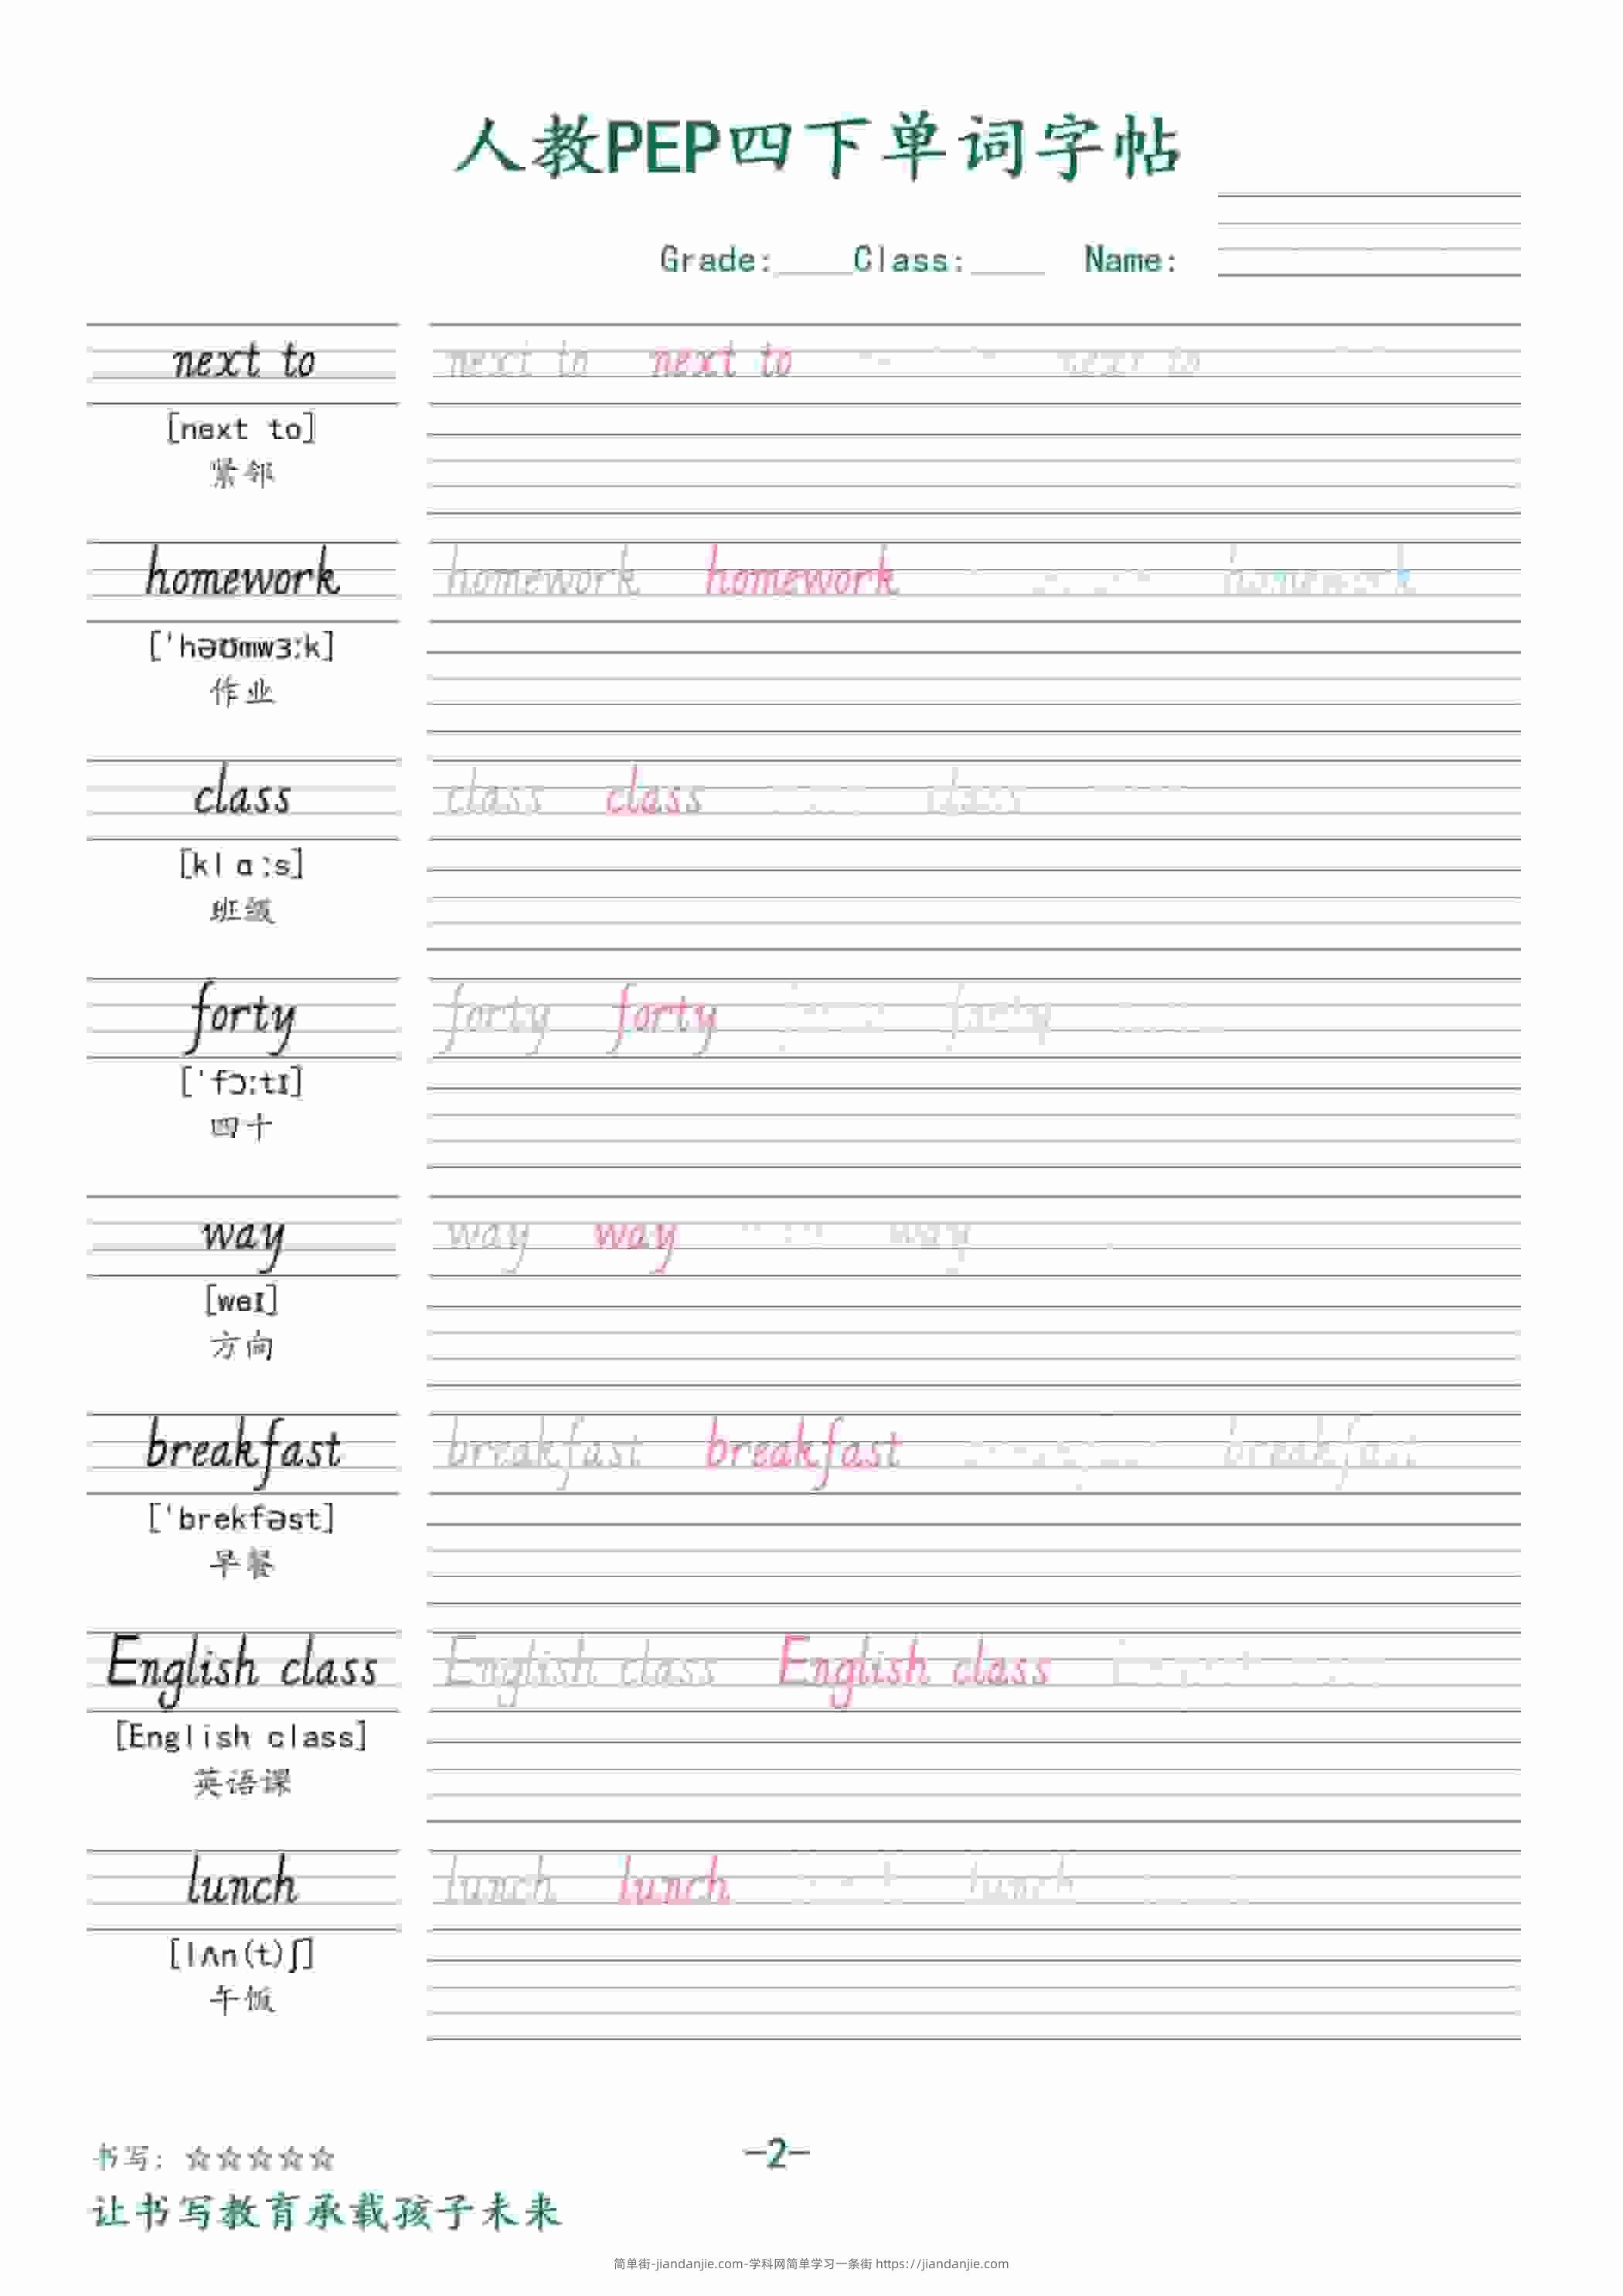 人教PEP四下单词字帖
Grade:____Class:____ Name:
next to next to next to next to
[next to]
紧邻
homework homework homework homework
['həʊmwɜːk]
作业
class class class class
[klɑːs]
班级
forty forty forty forty
['fɔːtɪ]
四十
way way way way
[weɪ]
方向
breakfast breakfast breakfast breakfast
['brekfəst]
早餐
English class English class English class
[English class]
英语课
lunch lunch lunch lunch
[lʌn(t)ʃ]
午饭
书写：☆☆☆☆☆
-2-
让书写教育承载孩子未来
简单街-jiandanjie.com-学科网简单学习一条街 https://jiandanjie.com